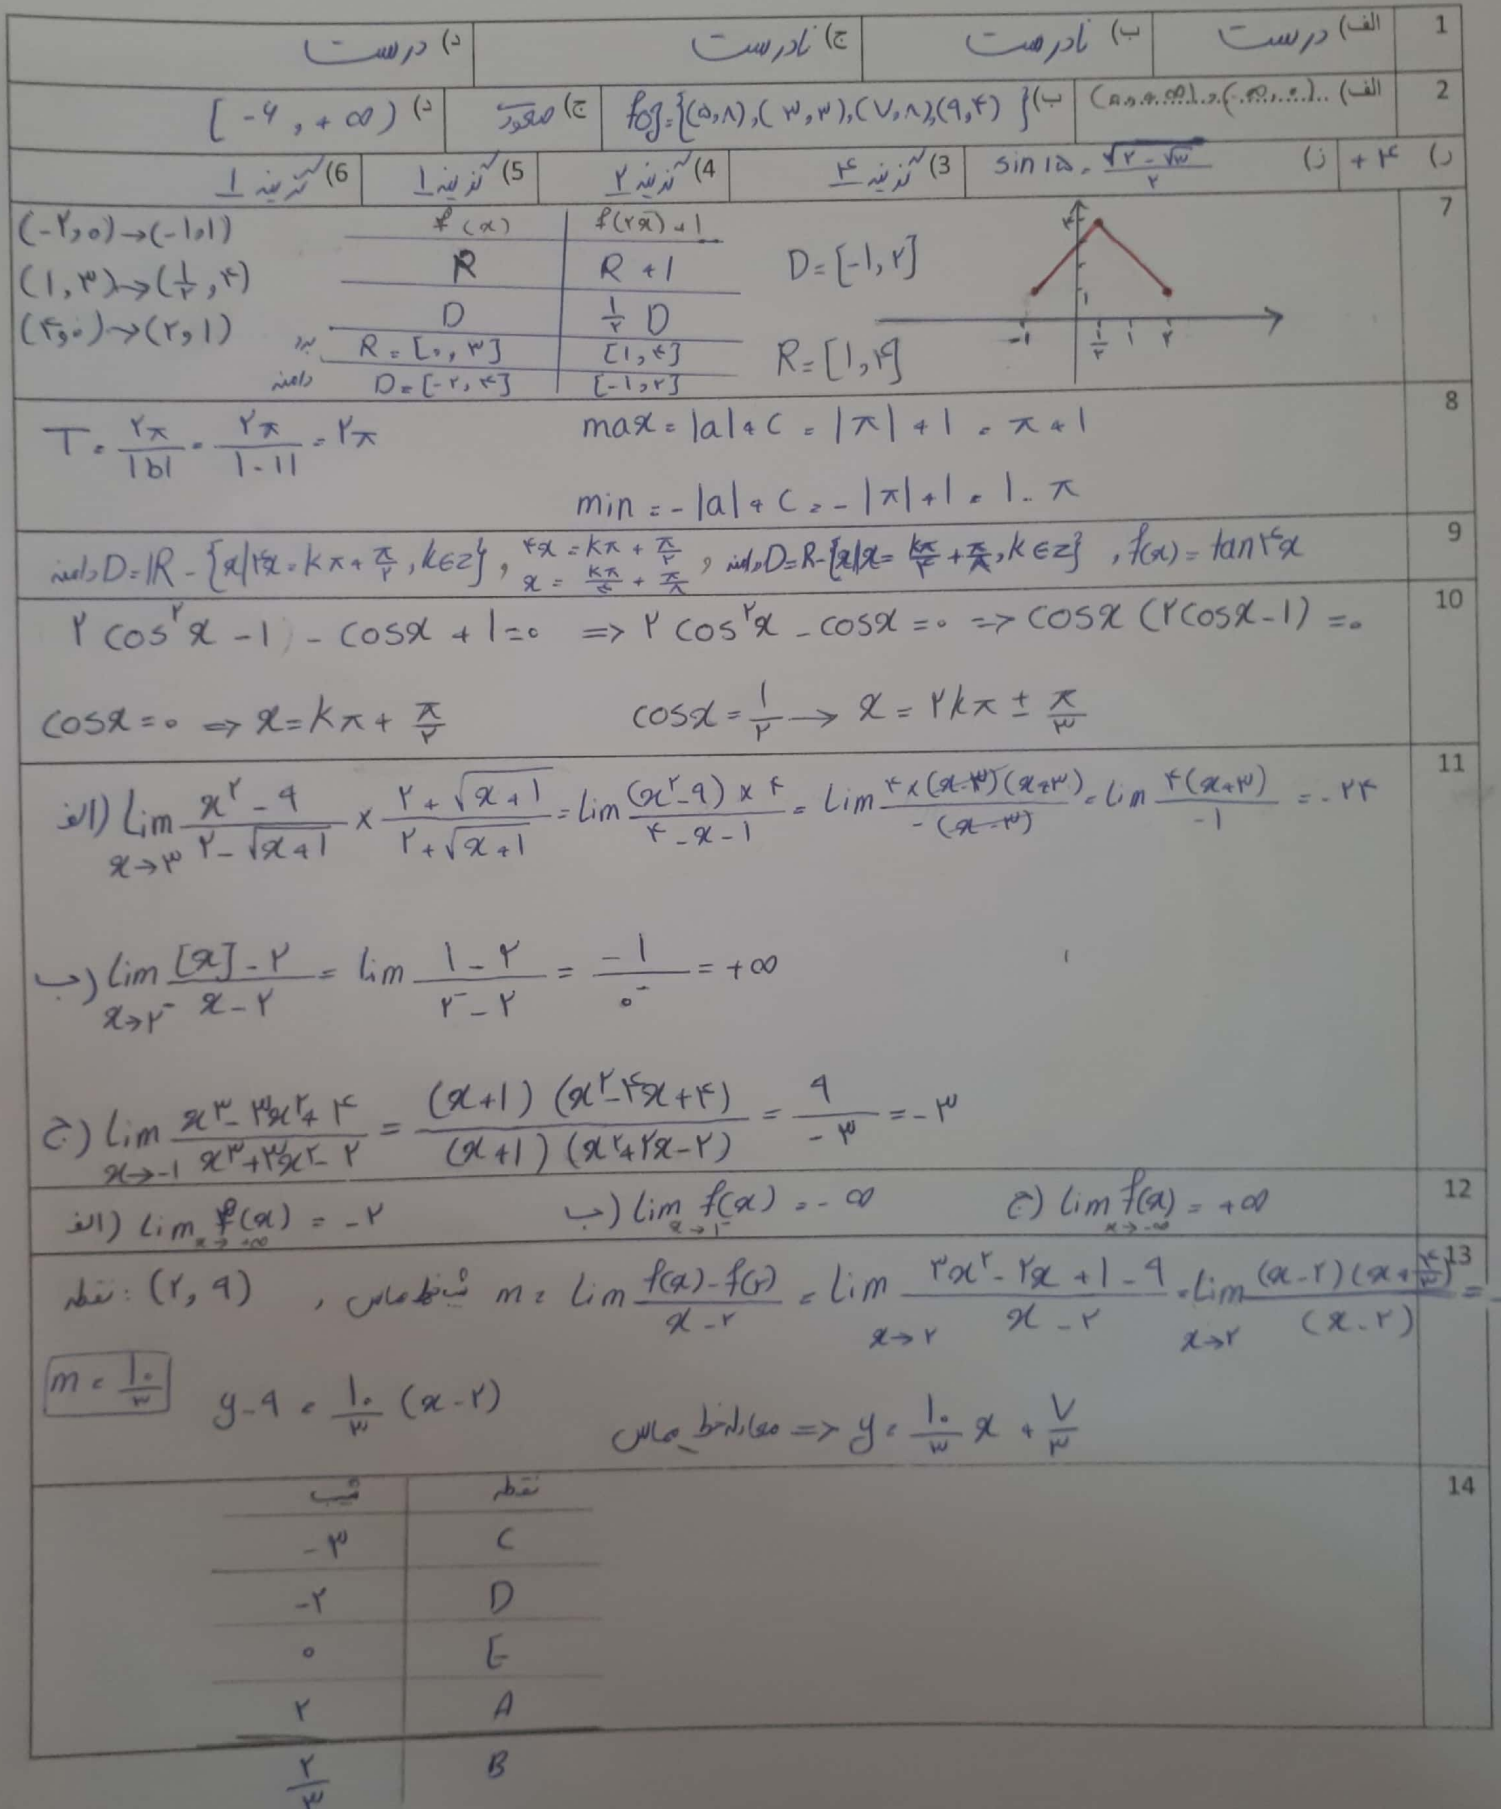 1 الف) درست ب) نادرست ج) نادرست د) درست
2 الف) ب) fog={(۵,۸),(۳,۳),(۷,۸),(۹,۴)} ج) صعودی د) [-۶,+∞)
ر) +۴ ز) sin ۱۵ = √(۲-√۳)/۲ 3) گزینه ۴ 4) گزینه ۲ 5) گزینه ۱ 6) گزینه ۱
7
(-۲,۰)→(-۱,۱)
(۱,۳)→(۱/۲,۴)
(۴,۰)→(۲,۱)
f(x) f(۲x)+۱
R R+۱
D ۱/۲ D
برد R=[۰,۳] [۱,۴]
دامنه D=[-۲,۴] [-۱,۲]
D=[-۱,۲]
R=[۱,۴]
۴
۱
-۱ ۱/۲ ۱ ۲
8
T = ۲π/|b| = ۲π/|-۱| = ۲π max = |a|+c = |π|+۱ = π+۱
min = -|a|+c = -|π|+۱ = ۱-π
9
دامنه D=R-{x|۴x=kπ+π/۲, k∈z}, ۴x=kπ+π/۲
x=kπ/۴+π/۸, دامنه D=R-{x|x=kπ/۴+π/۸, k∈z}, f(x)=tan۴x
10
۲cos²x-۱-cosx+۱=۰ ⇒ ۲cos²x-cosx=۰ ⇒ cosx(۲cosx-۱)=۰
cosx=۰ ⇒ x=kπ+π/۲ cosx=۱/۲ → x=۲kπ±π/۳
11
الف) lim x→۳ (x²-۹)/(۲-√(x+۱)) × (۲+√(x+۱))/(۲+√(x+۱)) = lim ((x²-۹)×۴)/(۴-x-۱) = lim (۴×(x-۳)(x+۳))/(-(x-۳)) = lim ۴(x+۳)/-۱ = -۲۴
ب) lim x→۲⁻ ([x]-۲)/(x-۲) = lim (۱-۲)/(۲⁻-۲) = -۱/۰⁻ = +∞
ج) lim x→-۱ (x³-۳x²+۴)/(x³+۳x²-۲) = ((x+۱)(x²-۴x+۴))/((x+۱)(x²+۲x-۲)) = ۹/-۳ = -۳
12
الف) lim x→+∞ f(x) = -۲ ب) lim x→۱⁻ f(x) = -∞ ج) lim x→-∞ f(x) = +∞
13
نقطه: (۲,۹) , شیب خط مماس m = lim (f(x)-f(۲))/(x-۲) = lim x→۲ (۳x²-۲x+۱-۹)/(x-۲) = lim x→۲ ((x-۲)(x+۴/۳))/(x-۲) =
m=۱۰/۳ y-۹=۱۰/۳(x-۲) معادله خط مماس ⇒ y=۱۰/۳x+۷/۳
14
شیب نقطه
-۳ C
-۲ D
۰ E
۲ A
۲/۳ B